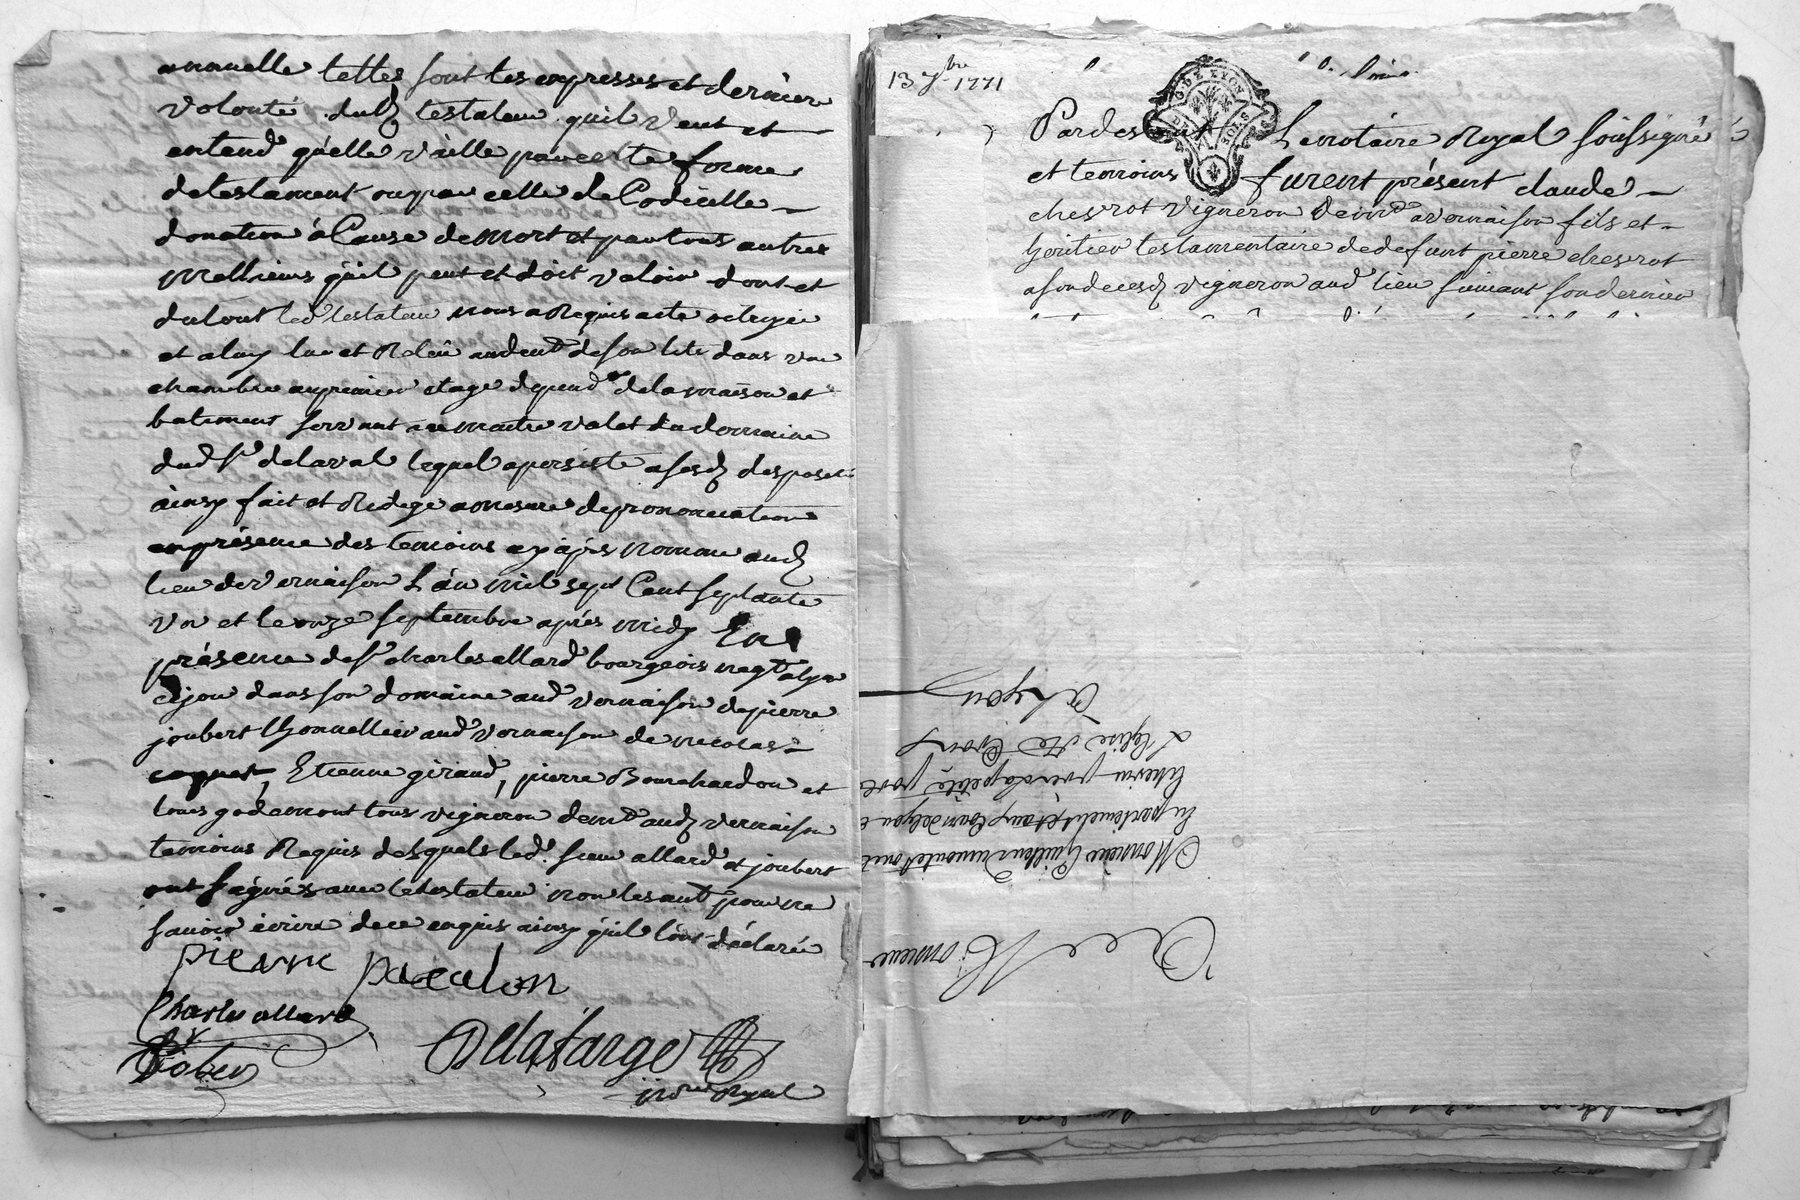 annuelle telles sont les expresses et dernier
volonté dud testateur quil veut et
entend quelle vaille par cette forme
de testament ou par celle de Codicille
donation à Cause de mort et par tous autres
meilleurs quil peut et doit valoir dont et
du tout led testateur nous a Requis acte octroyé
et a luy lu et Relû au devt de son lit dans une
chambre au premier etage depend de la maison et
batiment servant au maitre valet du domaine
dud sr delaval lequel a persisté a sesd disposit
ainsy fait et Redigé a mesure de prononciation
en présence des temoins cy après nommé aud
lieu de vernaison L'an mil sept Cent septante
un et le onze septembre aprés midy En
présence de sr charles allard bourgeois negt a lyon
dans son domaine aud vernaison de pierre
joubert thonnellier aud vernaison de nicolas
coquet, Etienne giraud, pierre Bouchardon et
louis godemont tous vigneron demt aud vernaison
temoins Requis desquels led. sieur allard et joubert
ont signés avec le testateur non les autr pour ne
savoir écrire de ce enquis ainsy quil l'ont déclaré
pierre paralon
Charles allard
Delafarge
Jober
nore Royal
13 7bre 1771
G. DE LYON
DEUX SOLS
Pardevant Le notaire Royal soussigné
et temoins furent présent claude
chesrot vigneron demt a vernaison fils et
heritier testamentaire de defunt pierre chesrot
a son decesd vigneron aud lieu suivant son dernier
A Monsieur
Monsieur
L'Eglise Ste Croix
A Lyon